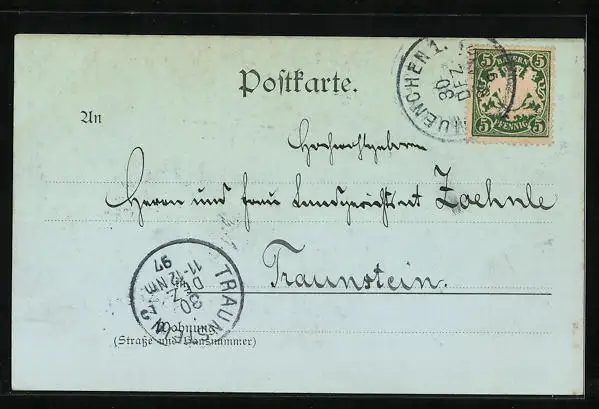 Postkarte.
MUENCHEN 1.
30
DEZ.
BAYERN
5 5
5 PFENNIG 5
An
Hochwohlgeboren
Herrn und Frau Landgerichtsrat Zaehnle
Traunstein.
TRAUNSTEIN 2
30
DEZ.
11-12 Nm
97
Wohnung
(Straße und Hausnummer)